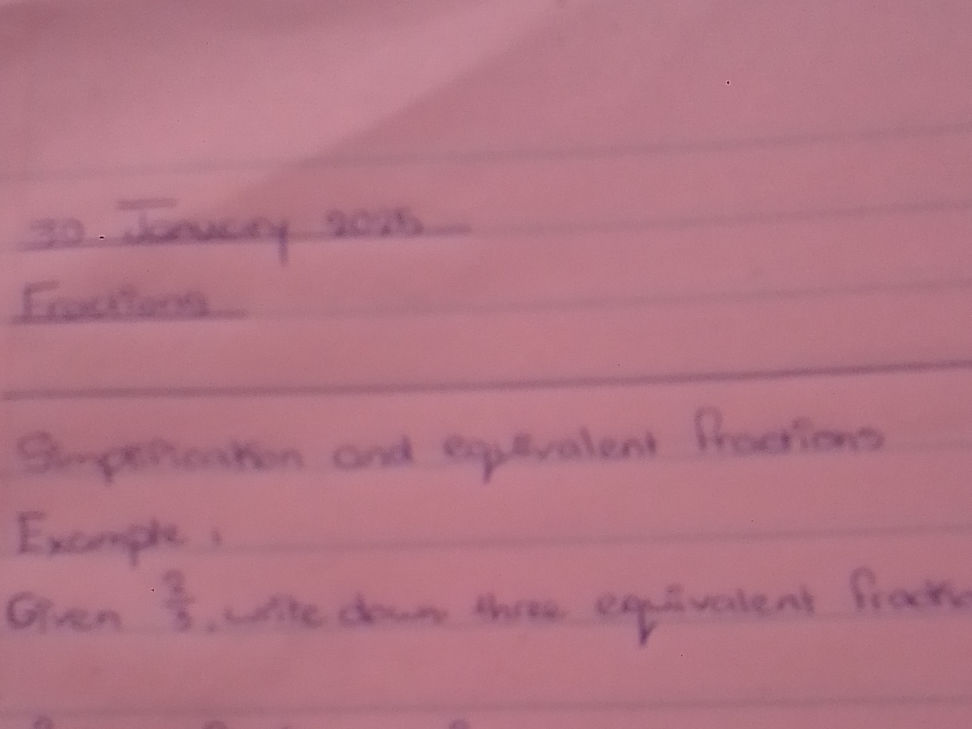 30 January 2025
Fractions
Simplification and equivalent fractions
Example:
Given 2/3, write down three equivalent